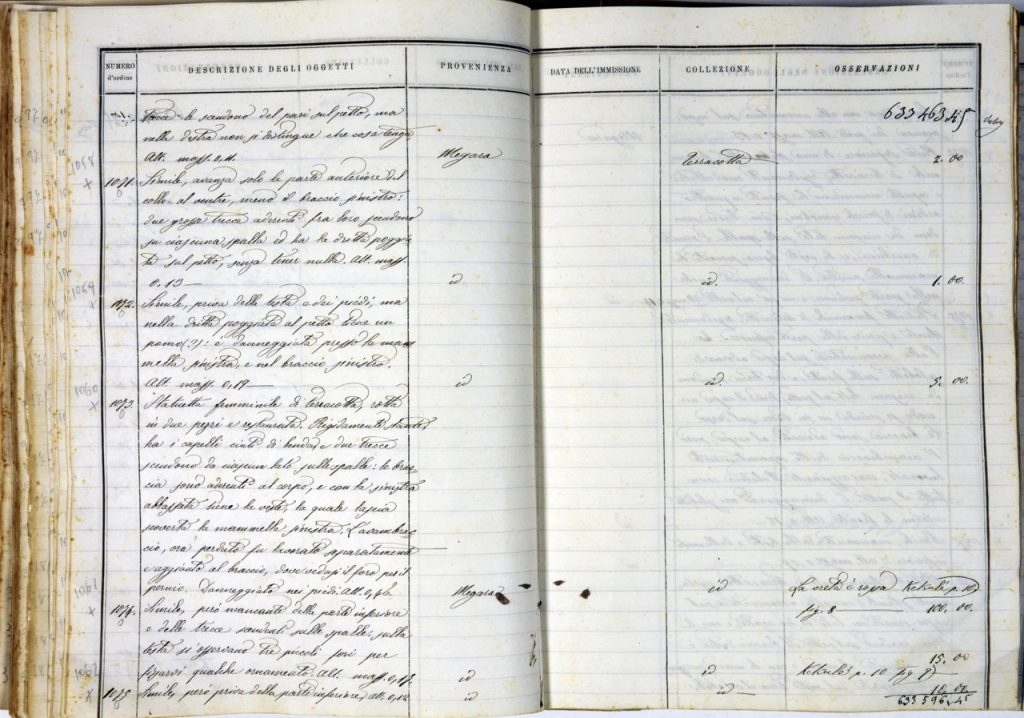 NUMERO d'ordine
DESCRIZIONE DEGLI OGGETTI
PROVENIENZA
DATA DELL'IMMISSIONE
COLLEZIONE
OSSERVAZIONI
633 463.45
trecce le scendono del pari sul petto, ma
nella destra non si distingue che cosa tenga
Alt. mass. 0,11. Megara Terracotta 2.00
1071. Simile, avanza solo la parte anteriore del
collo al ventre, meno il braccio sinistro:
due grosse trecce aderenti fra loro scendono
su ciascuna spalla ed ha la dritta poggia
ta sul petto, senza tener nulla. Alt. mass.
0.13 — id id. 1.00.
1072. Simile, priva della testa e dei piedi, ma
nella dritta poggiata al petto tiene un
pomo (?): è danneggiata presso la mam
mella sinistra, e nel braccio sinistro.
Alt. mass. 0,19 — id id. 5.00.
1073. Statuetta femminile di terracotta, rotta
in due pezzi e restaurata. Rigidamente stante,
ha i capelli cinti di benda, e due trecce
scendono da ciascun lato sulle spalle: le brac
cia sono aderenti al corpo, e con la sinistra
abbassata tiene la veste, la quale lascia
scoverta la mammella sinistra. L'avambrac
cio, ora perduto fu lavorato separatamente
e aggiunto al braccio, dove vedesi il foro per il
pernio. Danneggiata nei piedi. Alt. 0,56. Megara id La veste è rosa Kekulé p. 10
fig. 8 — 100.00.
1074. Simile, però mancante della parte inferiore
e delle trecce scendenti sulle spalle, sulla
testa si osservano tre piccoli fori per
fissarvi qualche ornamento. Alt. mass. 0,17. id id Kekulé p. 10 fig 9) 15.00
1075. Simile, però priva della parte inferiore, Alt. 0,12 id id —
633 596.45
1058
x
1059
x
1060
x
1061
x
1062
x